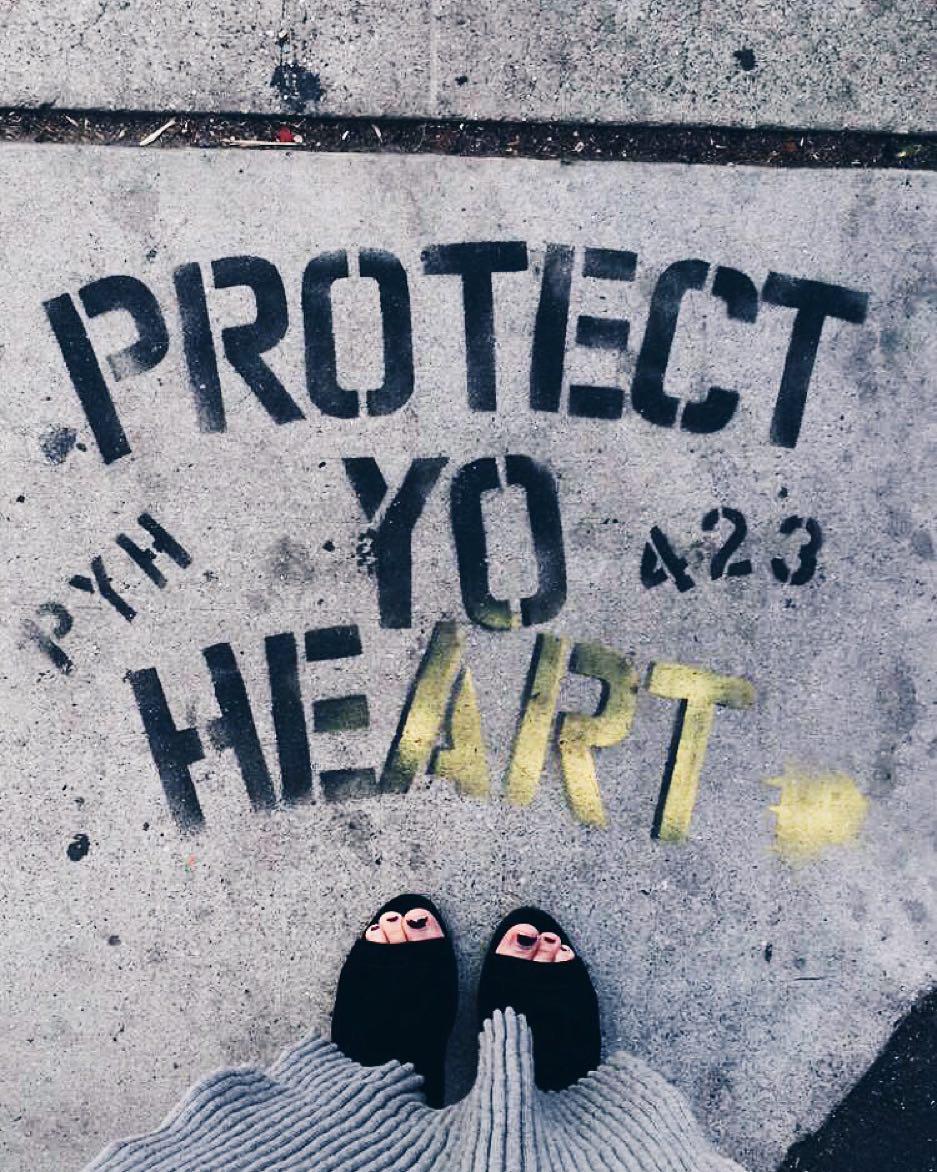 PROTECT
YO
PYH
423
HEART